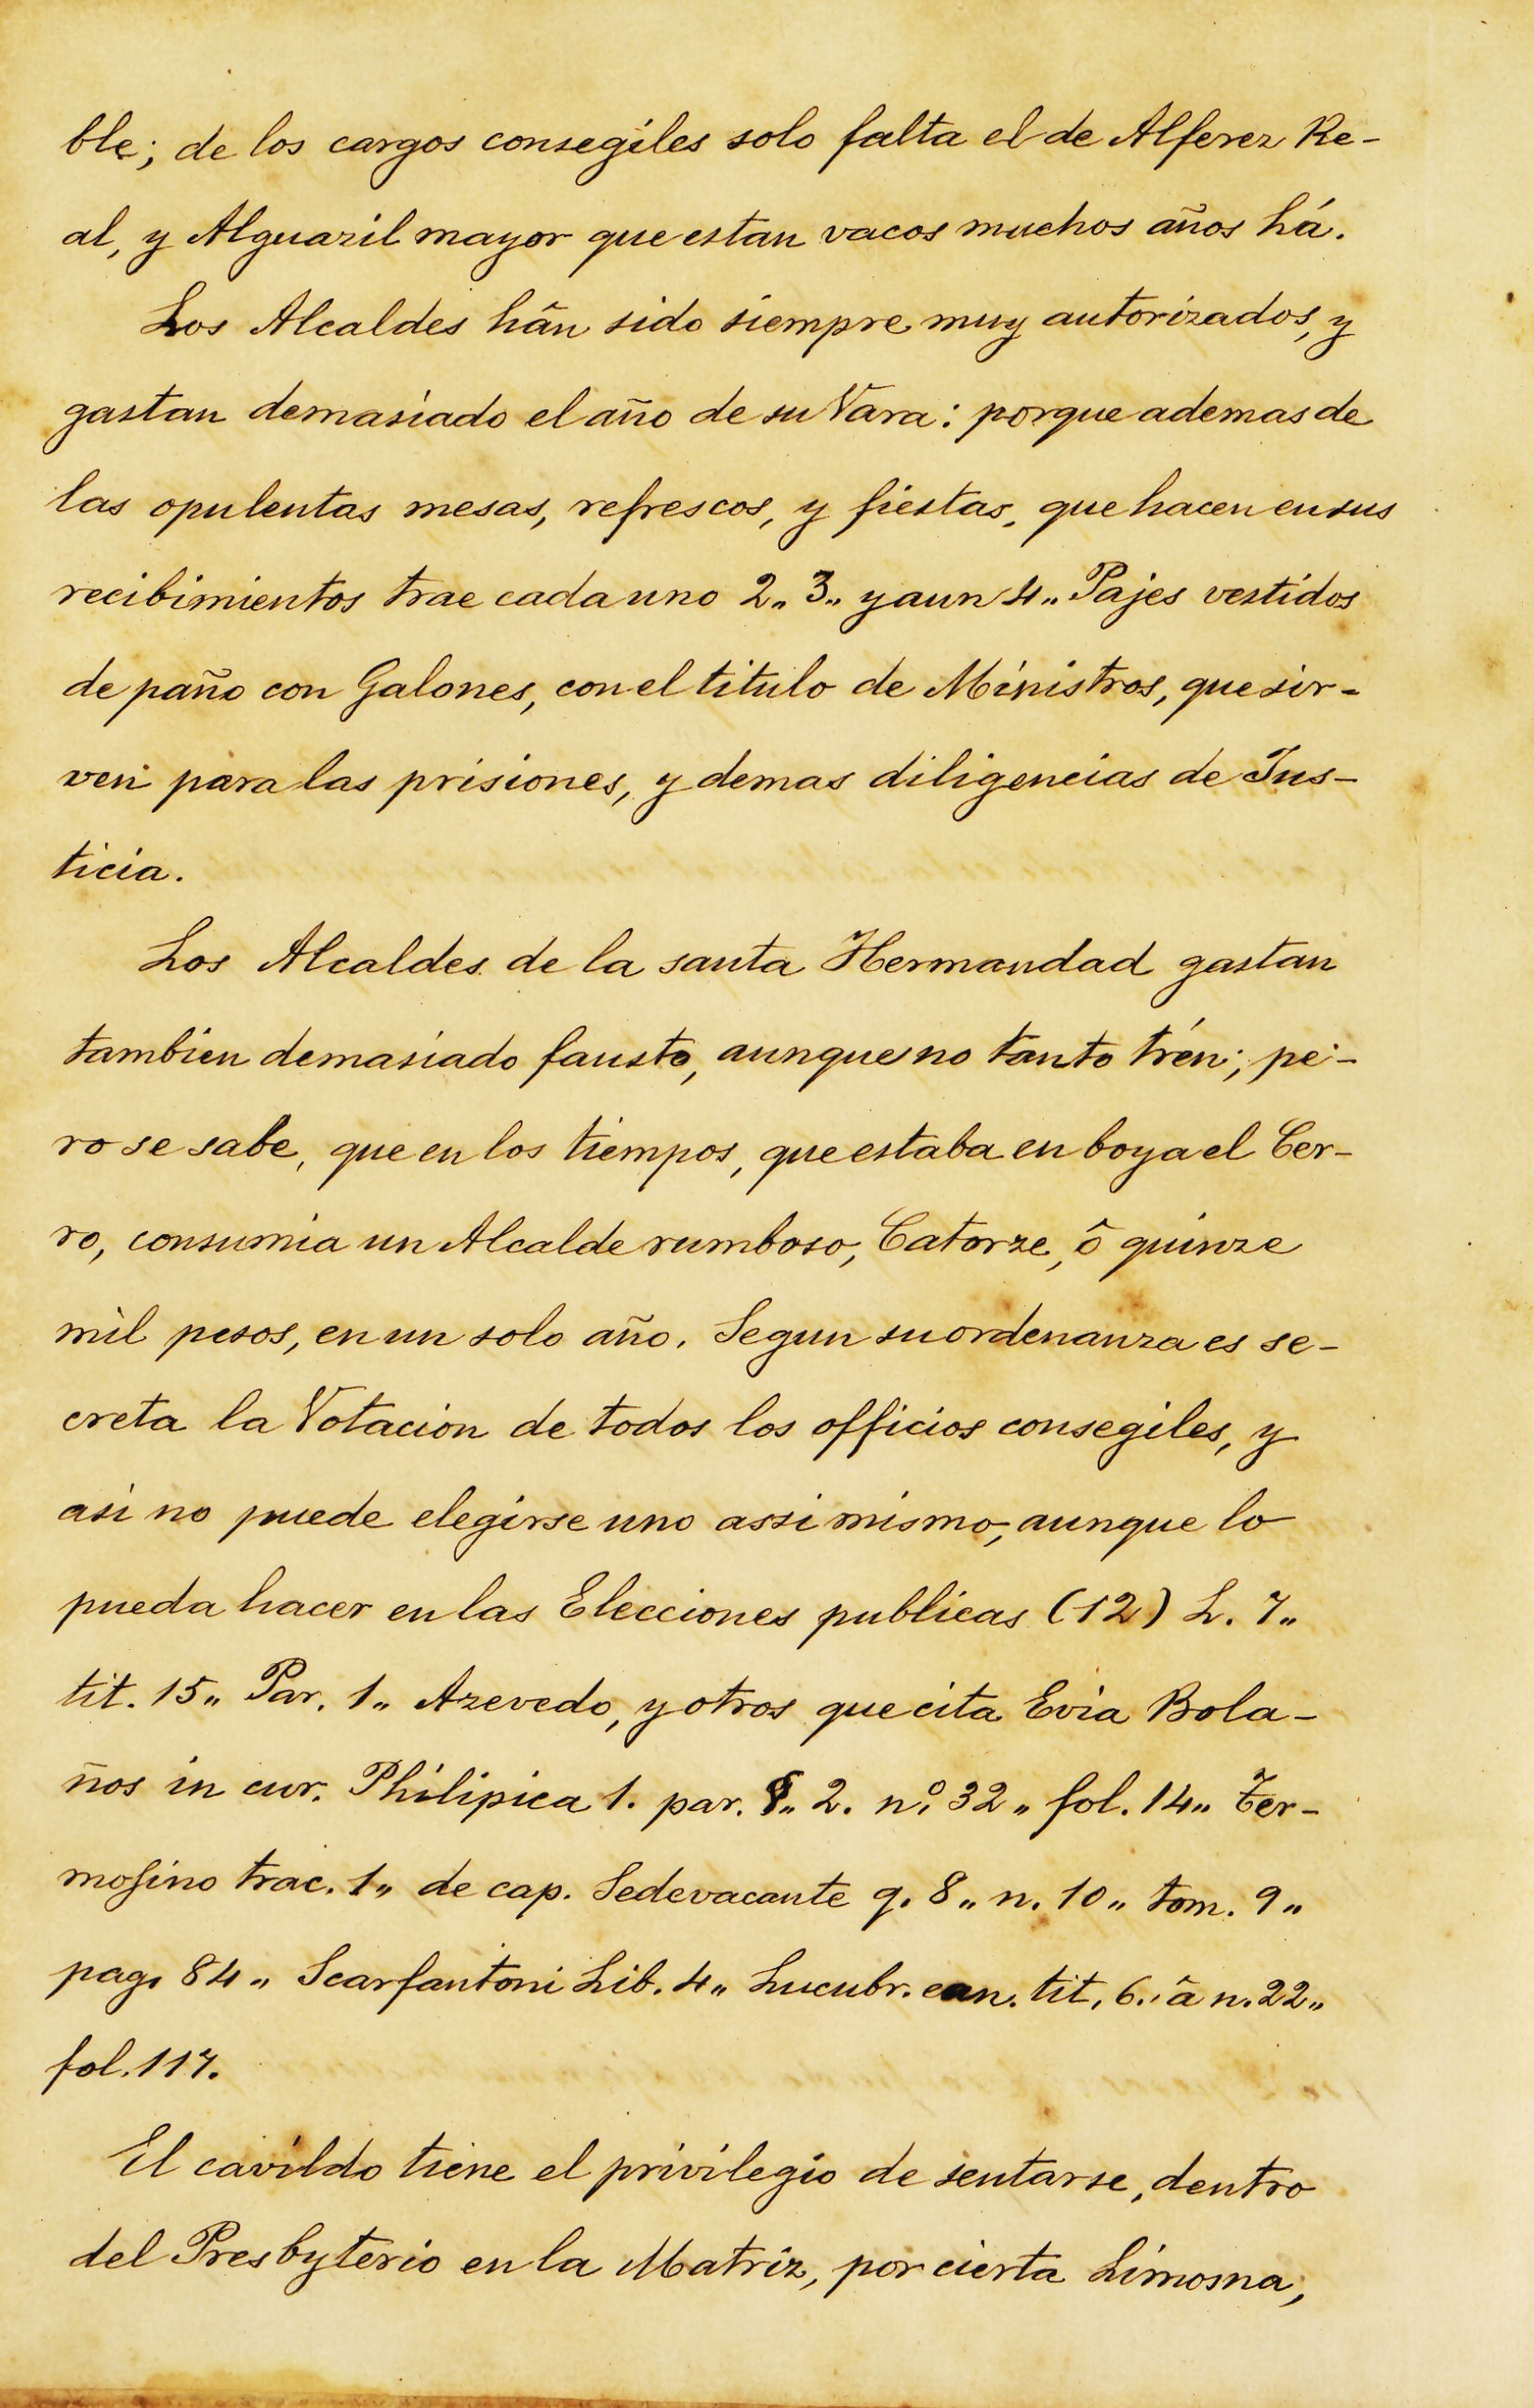 ble; de los cargos consegiles solo falta el de Alferez Re-
al, y Alguazil mayor que estan vacos muchos años há.
Los Alcaldes hân sido siempre muy autorizados, y
gastan demasiado el año de su Vara: porque ademas de
las opulentas mesas, refrescos, y fiestas, que hacen en sus
recibimientos trae cada uno 2„ 3„ y aun 4„ Pajes vestidos
de paño con Galones, con el titulo de Ministros, que sir-
ven para las prisiones, y demas diligencias de Jus-
ticia.
Los Alcaldes de la santa Hermandad gastan
tambien demasiado fausto, aunque no tanto trén; pe-
ro se sabe, que en los tiempos, que estaba en boya el Cer-
ro, consumia un Alcalde rumboso, Catorze, ô quinze
mil pesos, en un solo año. Segun su ordenanza es se-
creta la Votacion de todos los officios consegiles, y
asi no puede elegirse uno assi mismo, aunque lo
pueda hacer en las Elecciones publicas (12) L. 7„
tit. 15„ Par. 1„ Azevedo, y otros que cita Evia Bola-
ños in cur. Philipica 1. par. §„ 2. nº 32„ fol. 14„ Fer-
mosino trac. 1„ de cap. Sedevacante q. 8„ n. 10„ tom. 9„
pag. 84„ Scarfantoni Lib. 4„ Lucubr. can. tit. 6„ â n. 22„
fol. 117.
El cavildo tiene el privilegio de sentarse, dentro
del Presbyterio en la Matriz, por cierta Limosna,